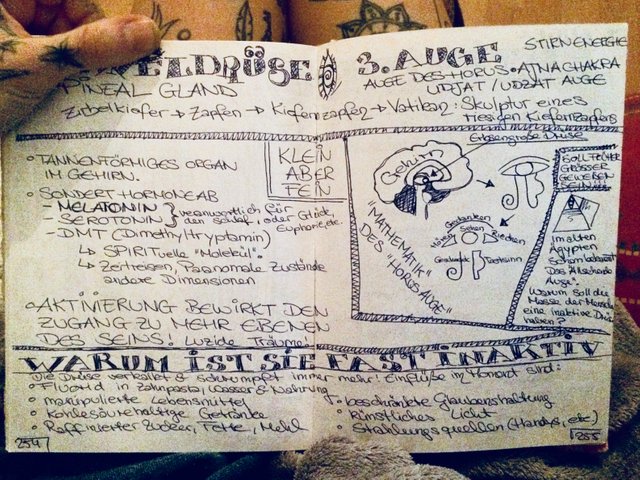 ELDRÜSE 3. AUGE
STIRNENERGIE
PINEAL GLAND
AUGE DES HORUS · AJNA CHAKRA
UDJAT / UDZAT AUGE
Zirbelkiefer → Zapfen → Kiefernzapfen → Vatikan: Skulptur eines
riesigen Kiefernzapfens
• TANNENFÖRMIGES ORGAN
IM GEHIRN.
KLEIN
ABER
FEIN
• SONDERT HORMONE AB
- MELATONIN
- SEROTONIN
verantwortlich für
den Schlaf, oder Glück,
Euphorie, etc.
- DMT (Dimethyltryptamin)
↳ SPIRITuelle "Molekül"
↳ Zeitreisen, Paranormale Zustände
andere Dimensionen
• AKTIVIERUNG BEWIRKT DEN
ZUGANG ZU MEHR EBENEN
DES SEINS! Luzide Träume!
Erbsengroße Drüse
Gehirn
Gedanken
Hören
Sehen
Riechen
Geschmack
Tastsinn
"MATHEMATIK"
DES "HORUS AUGE"
SOLL FRÜHER
GRÖSSER
GEWESEN
SEIN
Im alten
Ägypten
schon bekannt
Das Allsehende
Auge"
Warum soll die
Masse der Menschen
eine inaktive Drüse
haben?
WARUM IST SIE FAST INAKTIV
Die Drüse verkalkt & schrumpft immer mehr! Einflüße im Monat sind:
• Fluorid in Zahnpasta, Wasser & Nahrung
• manipulierte Lebensmittel
• kohlesäurehaltige Getränke
• Raffinierter Zucker, Fette, Mehl
• beschränkte Glaubenshaltung
• Künstliches Licht
• Strahlungsquellen (Handys, etc)
254
255